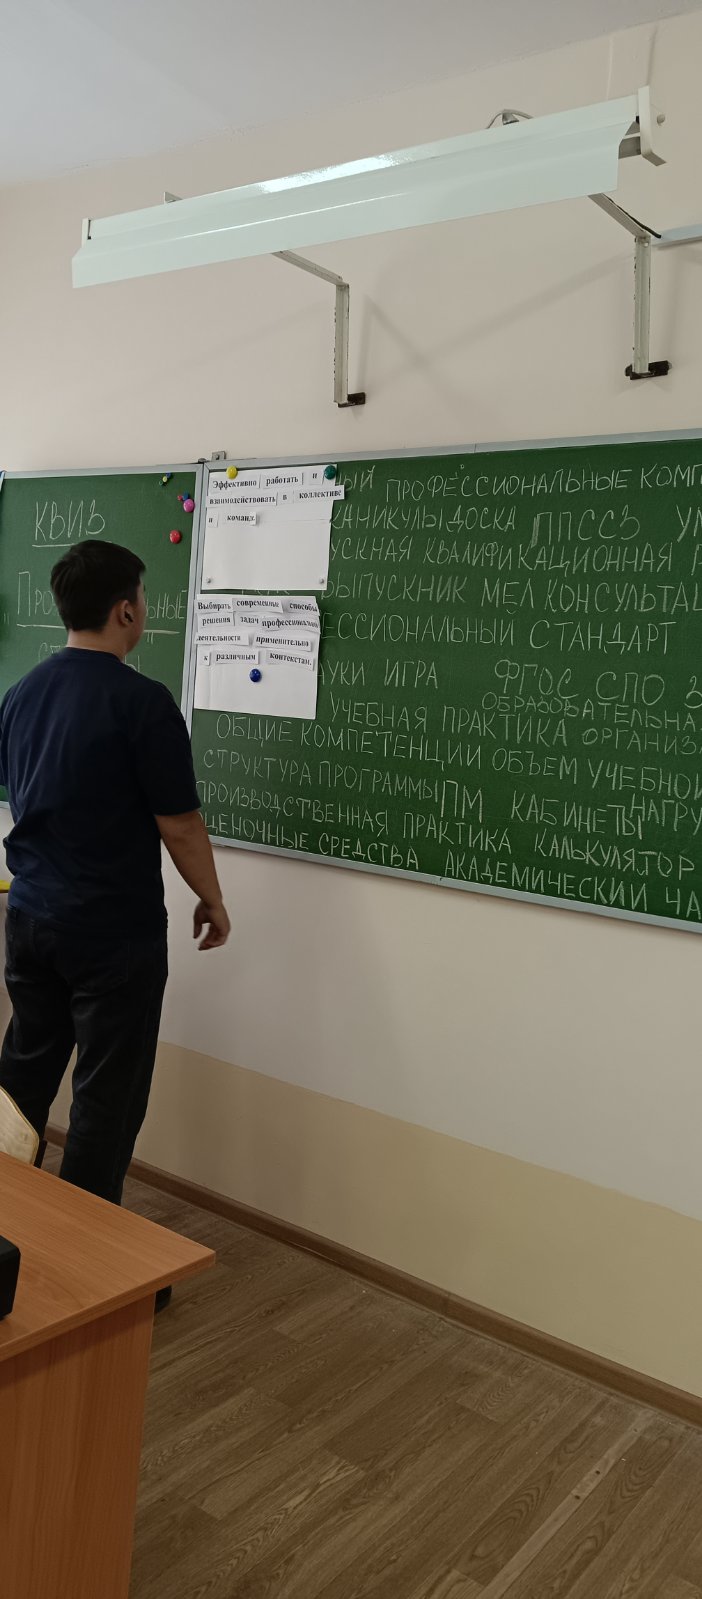 КВИЗ
Эффективно работать и
взаимодействовать в коллективе
и команде
Выбирать современные способы
решения задач профессиональной
деятельности применительно
к различным контекстам.
ПРОФЕССИОНАЛЬНЫЕ
КАНИКУЛЫ ДОСКА ППССЗ
КВАЛИФИКАЦИОННАЯ
ВЫПУСКНИК МЕЛ
СТАНДАРТ
ИГРА ФГОС СПО
ОБРАЗОВАТЕЛЬНА
УЧЕБНАЯ ПРАКТИКА
ОБЩИЕ КОМПЕТЕНЦИИ ОБЪЕМ УЧЕБНОЙ
СТРУКТУРА ПРОГРАММЫ ПМ КАБИНЕТЫ
ПРОИЗВОДСТВЕННАЯ ПРАКТИКА КАЛЬКУЛЯТОР
ОЦЕНОЧНЫЕ СРЕДСТВА АКАДЕМИЧЕСКИЙ